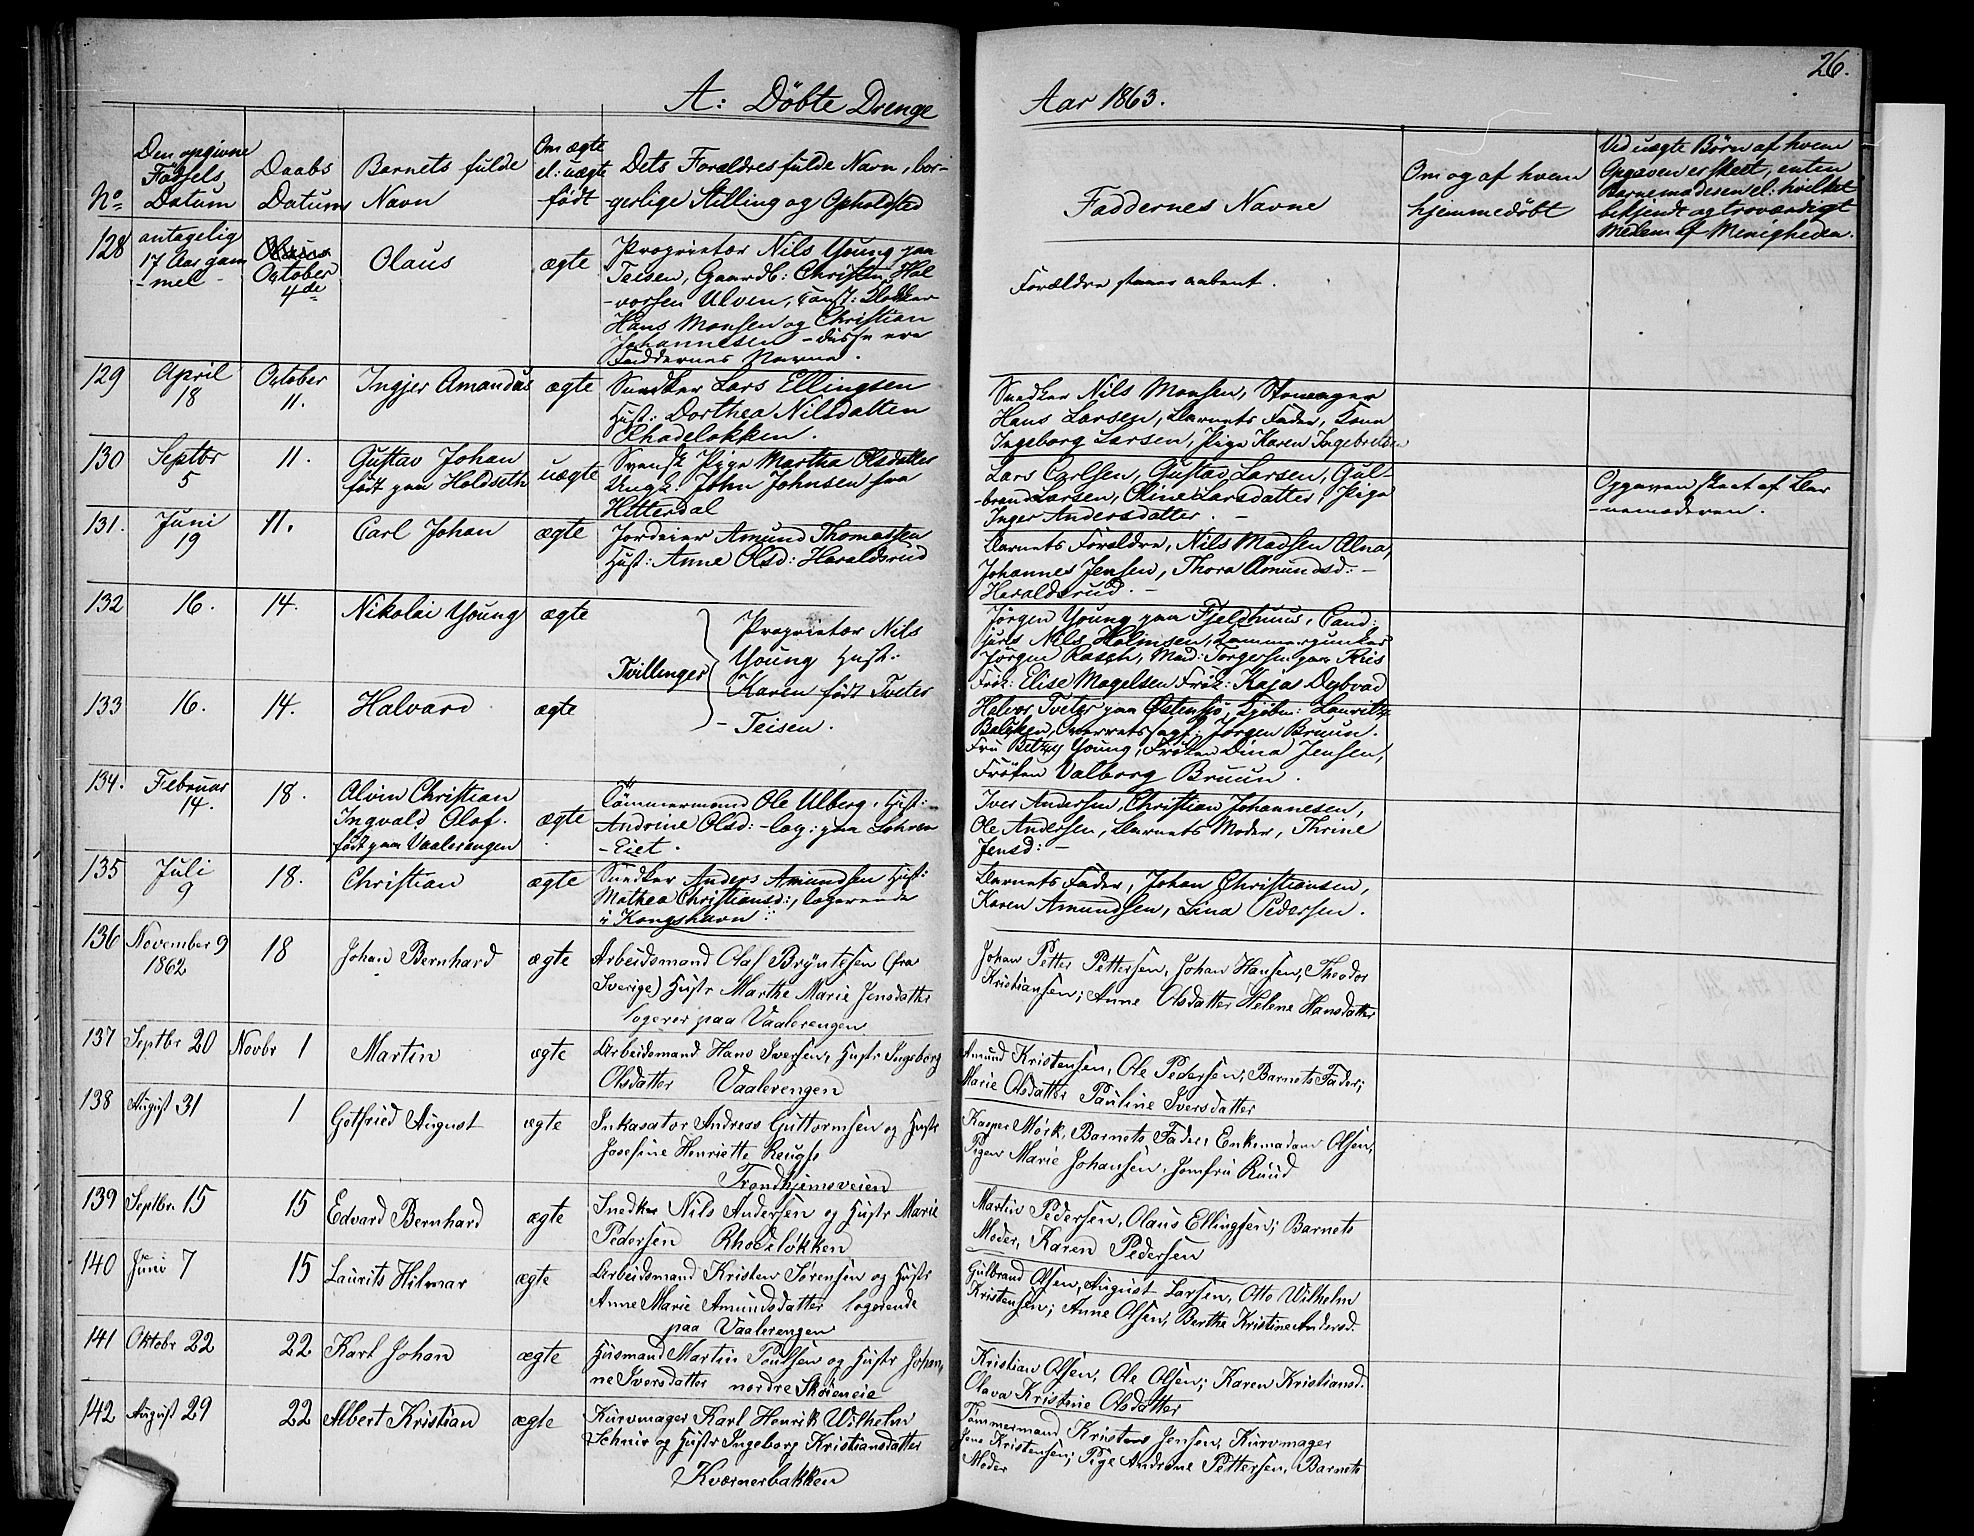 26.
A: Döbte Drenge
Aar 1863.
No
Den opgivne
Födsels
Datum
Daabs
Datum
Barnets fulde
Navn
Om ægte
el: uægte
födt
Dets Forældres fulde Navn, bor-
gerlige Stilling og Opholdsted
Faddernes Navne
Om og af hvem
hjemmedöbt
Ved uægte Børn af hvem
Opgaven er skeet, enten
Barnemoderen el: hvilket
bekjendt og troværdigt
Medlem af Menigheden.
128
antagelig
17 Aar gam
-mel-
October
4de
Olaus
ægte
Proprietær Nils Young paa
Teisen, Gaardb: Christen Hal
-vorsen Ulven, Const: Klokker
Hans Monsen og Christian
Johannesen - disse ere
Faddernes Navne.
Forældre staaer aabent.
129
April
18
October
11.
Ingjer Amandus
ægte
Snedker Lars Ellingsen
Hust: Dorthea Nilsdatten
Rhodeløkken.
Snedker Nils Monsen,
Hans Larsen, Barnets Fader, Kone
Ingeborg Larsen, Pige Karen Ingebretsen
130
Septbr
5
11.
Gustav Johan
födt paa Holdseth
uægte
Svensk Pige Martha Olsdatter
Ungk. John Johnsen fra
Hitterdal
Lars Carlsen, Gustav Larsen, Gul-
-brand Larsen, Oline Larsdatter, Pige
Inger Andersdatter. -
Opgaven skeet af Bar
-nemoderen.
131.
Juni
19
11.
Carl Johan
ægte
Jordeier Amund Thomassen
Hust: Anne Olsd: Haraldsrud
Barnets Forældre, Nils Madsen Alna,
Johannes Jensen, Thora Amundsd: -
Haraldsrud. -
132
16.
14.
Nikolai Young
ægte
Tvillinger
Proprietær Nils
Young Hust:
Karen födt Tveter
- Teisen.
Jörgen Young paa Fjeldhuus, Cand:
juris Nils Holmsen, Kammerjunker
Jörgen Rasch, Mad: Torgersen paa Riis
Frök: Elise Magelsen Frök: Kajas Dybvad
133
16.
14.
Halvard
ægte
Halvor Tveter paa Østensjö, Kjöbm: Lauritz
Balchen, Overretssagf: Jörgen Bruun.
Fru Betzy Young, Fröken Dina Jensen,
Fröken Valborg Bruun.
134.
Februar
14.
18.
Alvin Christian
Ingvald Olaf.
födt paa Vaalerengen
ægte
Tömmermand Ole Ulberg, Hust:
Andrine Olsd: - log: paa Lohren
-Eiet.
Iver Andersen, Christian Johannesen,
Ole Andersen, Barnets Moder, Thrine
Jensd: -
135
Juli
9
18.
Christian
ægte
Snedker Anders Amundsen Hust:
Mathea Christiansd:, logerende
i Kongshavn.
Barnets Fader, Johan Christiansen,
Karen Amundsen, Lina Pedersen.
136
November 9
1862
18
Johan Bernhard
ægte
Arbeidsmand Olaf Bryntesen (fra
Sverige) Hustr Marthe Marie Jensdatter
logerer paa Vaalerengen
Johan Petter Pettersen, Johan Hansen, Theodor
Kristiansen; Anne Olsdatter Helene Hansdatter
137
Septbr 20
Novbr 1
Martin
ægte
Arbeidsmand Hans Iversen, Hustr Ingeborg
Olsdatter Vaalerengen
Amund Kristensen, Ole Pedersen, Barnets Fader;
Marie Olsdatter Pauline Iversdatter
138
August 31
1
Gotfried August
ægte
Inkasator Andreas Guttormsen og Hustr
Josefine Henriette
Trondhjemsveien
Kasper Mörk, Barnets Fader, Enkemadam Olsen,
Pigen Marie Johansen, Jomfru Ruud
139
Septbr 15
15
Edvard Bernhard
ægte
Snedker Nils Andersen og Hustr Marie
Pedersen Rhodeløkken
Martin Pedersen, Olaus Ellingsen; Barnets
Moder, Karen Pedersen
140
Juni 7
15
Laurits Hilmar
ægte
Arbeidsmand Kristen Sörensen og Hustr
Anne Marie Amundsdatter logerende
paa Vaalerengen
Gulbrand Olsen, August Larsen, Otto Wilhelm
Kristensen; Anne Olsen, Berthe Kristine Andersd.
141
Oktobr 22
22
Karl Johan
ægte
Husmand Martin Poulsen og Hustr Johan,
ne Iversdatter nordre Skøieneie
Kristian Olsen, Ole Olsen; Karen Kristiansd.
Olava Kristine Olsdatter
142
August 29
22
Albert Kristian
ægte
Kurvmager Karl Henrik Wilhelm
Schnir og Hustr Ingeborg Kristiansdatter
Kværnerbakken
Tømmermand Kristens Jensen, Kurvmager
Jens Kristensen; Pige Andrine Pettersen, Barnets
Moder